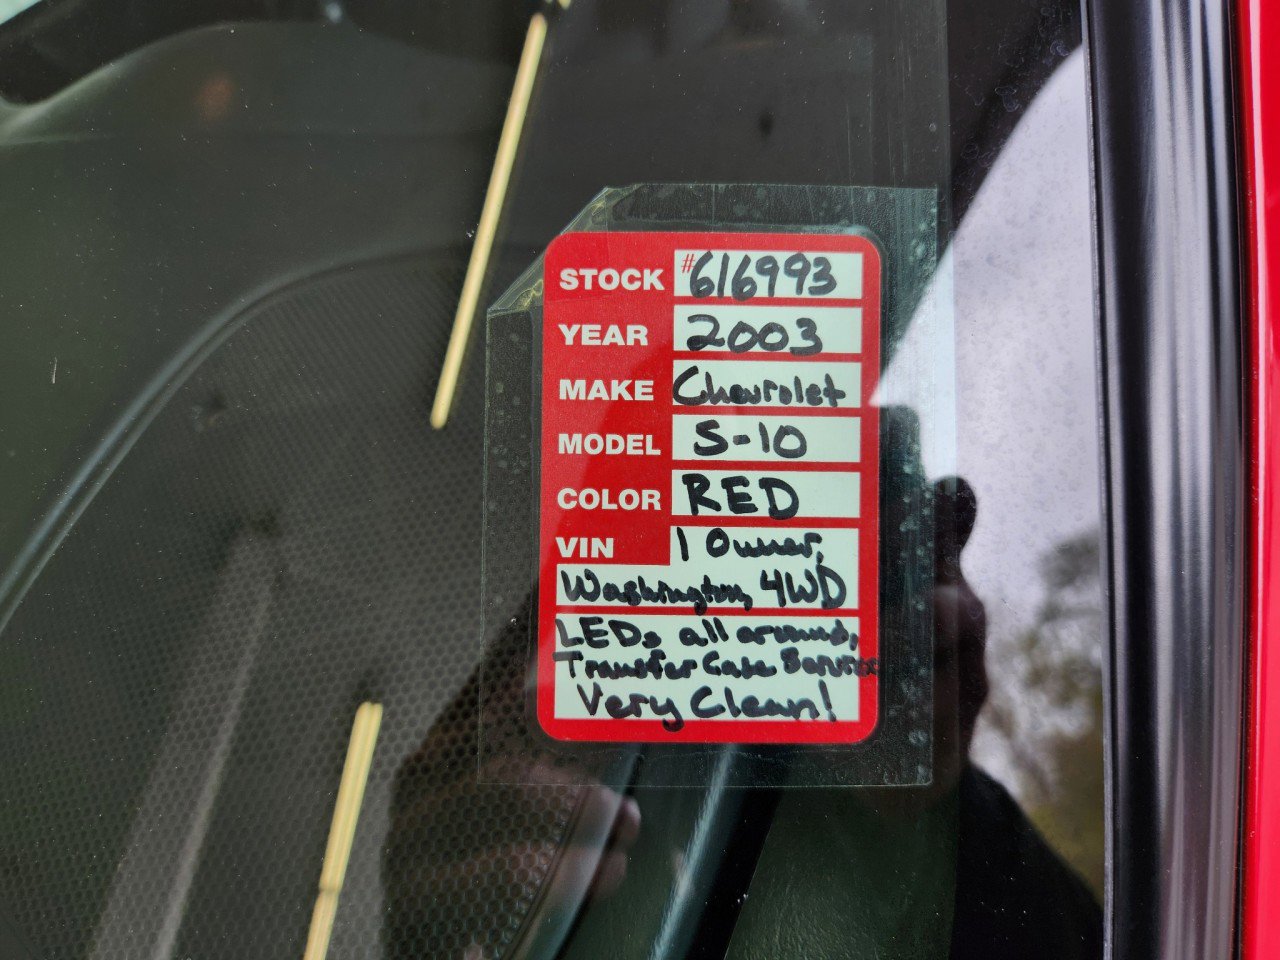 STOCK #616993
YEAR 2003
MAKE Chevrolet
MODEL S-10
COLOR RED
VIN 1 Owner,
Washington, 4WD
LEDs all around,
Transfer Case Service
Very Clean!